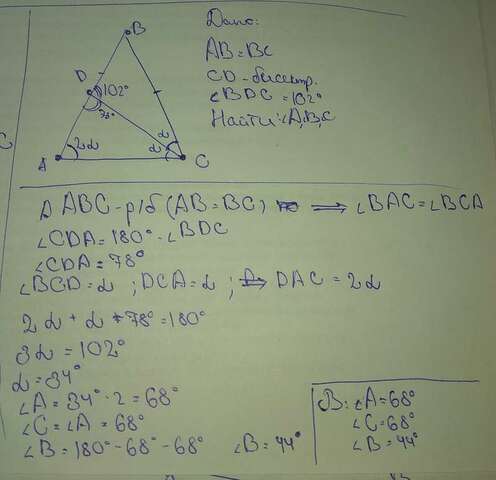 B
Дано:
AB=BC
D
102°
CD-биссектр.
∠BDC=102°
78°
Найти: ∠A,B,C
2α
α
α
A
C
Δ ABC-р/б (AB=BC) ⇒ ∠BAC=∠BCA
∠CDA=180°-∠BDC
∠CDA=78°
∠BCD=α ; DCA=α ; ⇒ DAC=2α
2α+α+78°=180°
3α=102°
α=34°
∠A=34°·2=68°
∠C=∠A=68°
∠B=180°-68°-68° ∠B=44°
B: ∠A=68°
∠C=68°
∠B=44°